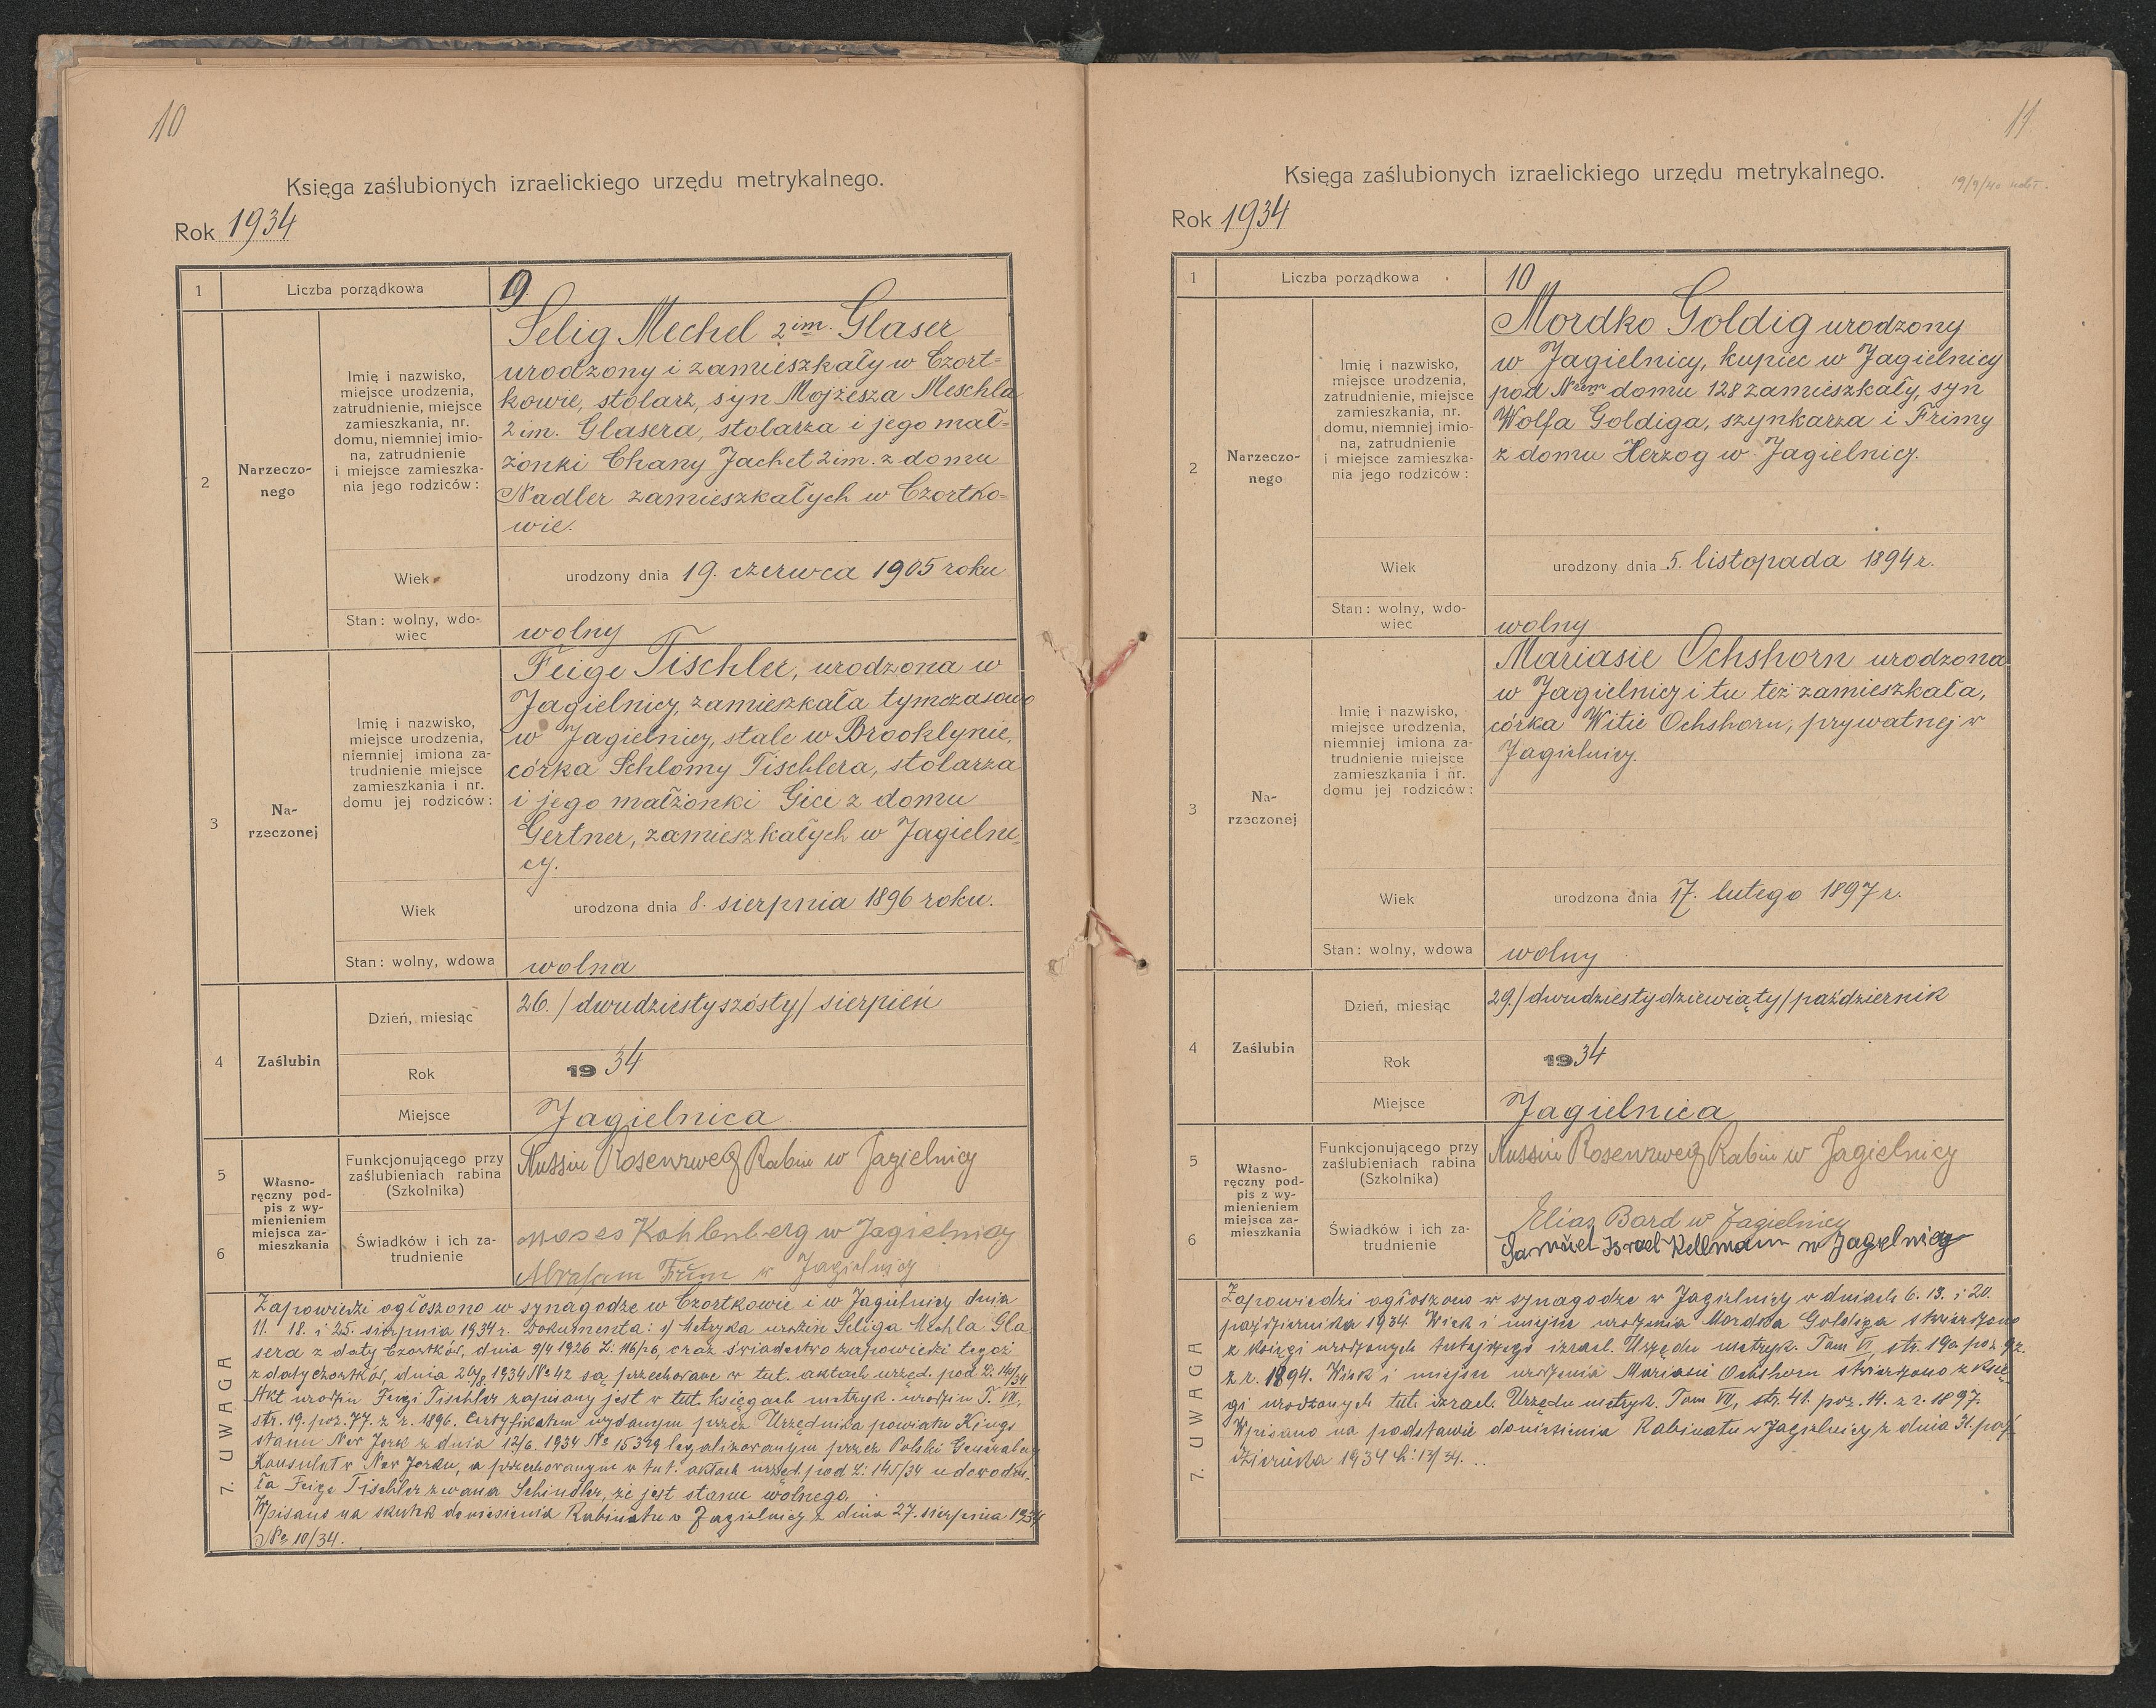 10
Księga zaślubionych izraelickiego urzędu metrykalnego.
Rok 1934
1
Liczba porządkowa
9.
2
Narzeczo-
nego
Imię i nazwisko,
miejsce urodzenia,
zatrudnienie, miejsce
zamieszkania, nr.
domu, niemniej imio-
na, zatrudnienie
i miejsce zamieszka-
nia jego rodziców:
Selig Mechel 2 im. Glaser
urodzony i zamieszkały w Czort=
kowie, stolarz, syn Mojżesza Meschla
2 im. Glasera, stolarza i jego mał=
żonki Chany Jachet 2 im. z domu
Nadler zamieszkałych w Czortko=
wie.
Wiek
urodzony dnia 19. czerwca 1905 roku
Stan: wolny, wdo-
wiec
wolny
3
Na-
rzeczonej
Imię i nazwisko,
miejsce urodzenia,
niemniej imiona za-
trudnienie miejsce
zamieszkania i nr.
domu jej rodziców:
Feige Tischler, urodzona w
Jagielnicy, zamieszkała tymczasowo
w Jagielnicy, stale w Brooklynie,
córka Schlomy Tischlera, stolarza
i jego małżonki Gice z domu
Gertner, zamieszkałych w Jagielni=
cy.
Wiek
urodzona dnia 8. sierpnia 1896 roku.
Stan: wolny, wdowa
wolna
4
Zaślubin
Dzień, miesiąc
26. / dwudziesty szósty / sierpień
Rok
1934
Miejsce
Jagielnica
5
6
Własno-
ręczny pod-
pis z wy-
mienieniem
miejsca za-
mieszkania
Funkcjonującego przy
zaślubieniach rabina
(Szkolnika)
Nussin Rosenzweig Rabin w Jagielnicy
Świadków i ich za-
trudnienie
Moses Kohlenberg w Jagielnicy
Abraham w Jagielnicy
7. UWAGA
Zapowiedzi ogłoszono w synagodze w Czortkowie i w Jagielnicy dnia
11. 18. i 25. sierpnia 1934 r. Dokumenta: 1/ Metryka urodzin Seliga Mechla Gla
sera z daty Czortków, dnia 9/4 1926 L: 116/26, oraz świadectwo zapowiedzi tegoż
z daty Czortków, dnia 26/8. 1934 No 42 są przechowane w tut. aktach urzęd. pod L: 146/34
Akt urodzin Feigi Tischler zapisany jest w tut. księgach metryk. urodzin T. VII,
str. 19. poz. 77. z r. 1896. Certyfikatem wydanym przez Urzędnika powiatu Kings
stanu New Jork z dnia 12/6. 1934 No 15329 legalizowanym przez Polski Generalny
Konsulat w New Jorku, a przechowanym w tut. aktach urzęd. pod L: 145/34 udowodni-
ła Feige Tischler zwana Schindler, że jest stanu wolnego.
Wpisano na skutek doniesienia Rabinatu w Jagielnicy z dnia 27. sierpnia 1934
No 10/34.
11
Księga zaślubionych izraelickiego urzędu metrykalnego.
19/9/40
Rok 1934
1
Liczba porządkowa
10
2
Narzeczo-
nego
Imię i nazwisko,
miejsce urodzenia,
zatrudnienie, miejsce
zamieszkania, nr.
domu, niemniej imio-
na, zatrudnienie
i miejsce zamieszka-
nia jego rodziców:
Mordko Goldig urodzony
w Jagielnicy, kupiec w Jagielnicy
pod Nrem domu 128 zamieszkały, syn
Wolfa Goldiga, szynkarza i Frimy
z domu Herzog w Jagielnicy.
Wiek
urodzony dnia 5. listopada 1894 r.
Stan: wolny, wdo-
wiec
wolny
3
Na-
rzeczonej
Imię i nazwisko,
miejsce urodzenia,
niemniej imiona za-
trudnienie miejsce
zamieszkania i nr.
domu jej rodziców:
Mariasie Ochshorn urodzona
w Jagielnicy i tu też zamieszkała,
córka Witie Ochshorn, prywatnej w
Jagielnicy.
Wiek
urodzona dnia 17. lutego 1897 r.
Stan: wolny, wdowa
wolny
4
Zaślubin
Dzień, miesiąc
29. / dwudziesty dziewiąty / październik
Rok
1934
Miejsce
Jagielnica
5
6
Własno-
ręczny pod-
pis z wy-
mienieniem
miejsca za-
mieszkania
Funkcjonującego przy
zaślubieniach rabina
(Szkolnika)
Nussin Rosenzweig Rabin w Jagielnicy
Świadków i ich za-
trudnienie
Elias Bard w Jagielnicy
Samuel Israel Kellmann w Jagielnicy
7. UWAGA
Zapowiedzi ogłoszono w synagodze w Jagielnicy w dniach 6. 13. i 20.
października 1934. Wiek i miejsce urodzenia Mordka Goldiga stwierdzono
z księgi urodzonych tutejszego izrael. Urzędu metryk. Tom VI, str. 19a poz. 92.
z r. 1894. Wiek i miejsce urodzenia Mariasie Ochshorn stwierdzono z księ=
gi urodzonych tut. izrael. Urzędu metryk. Tom VII, str. 41. poz. 14. z r. 1897.
Wpisano na podstawie doniesienia Rabinatu w Jagielnicy z dnia 31. paź-
dziernika 1934 L: 13/34.